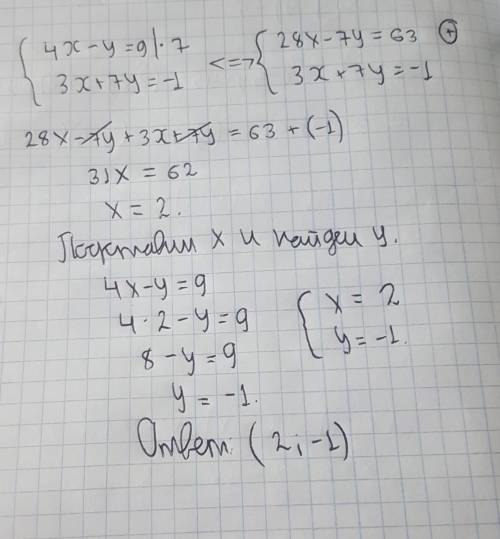 { 4x - y = 9 | · 7 <=> { 28x - 7y = 63 (+)
3x + 7y = -1 3x + 7y = -1
28x - 7y + 3x + 7y = 63 + (-1)
31x = 62
x = 2.
Подставим x и найдем y.
4x - y = 9
4 · 2 - y = 9 { x = 2
8 - y = 9 y = -1.
y = -1.
Ответ: (2; -1)